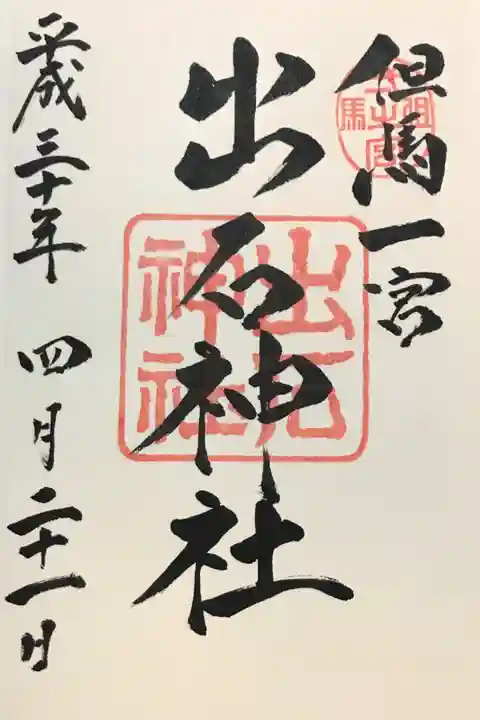 但馬一宮
出石神社
出石神社
平成三十年 四月二十一日